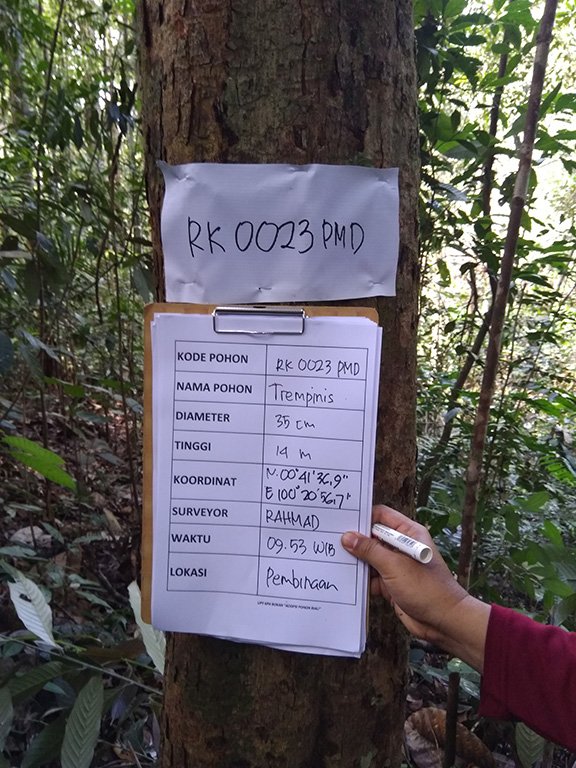 RK 0023 PMD
KODE POHON RK 0023 PMD
NAMA POHON Trempinis
DIAMETER 35 cm
TINGGI 14 m
KOORDINAT N: 00° 41' 36,9"
E 100° 20' 56,7"
SURVEYOR RAHMAD
WAKTU 09.53 WIB
LOKASI Pembinaan
"ADOPSI POHON RIAU"